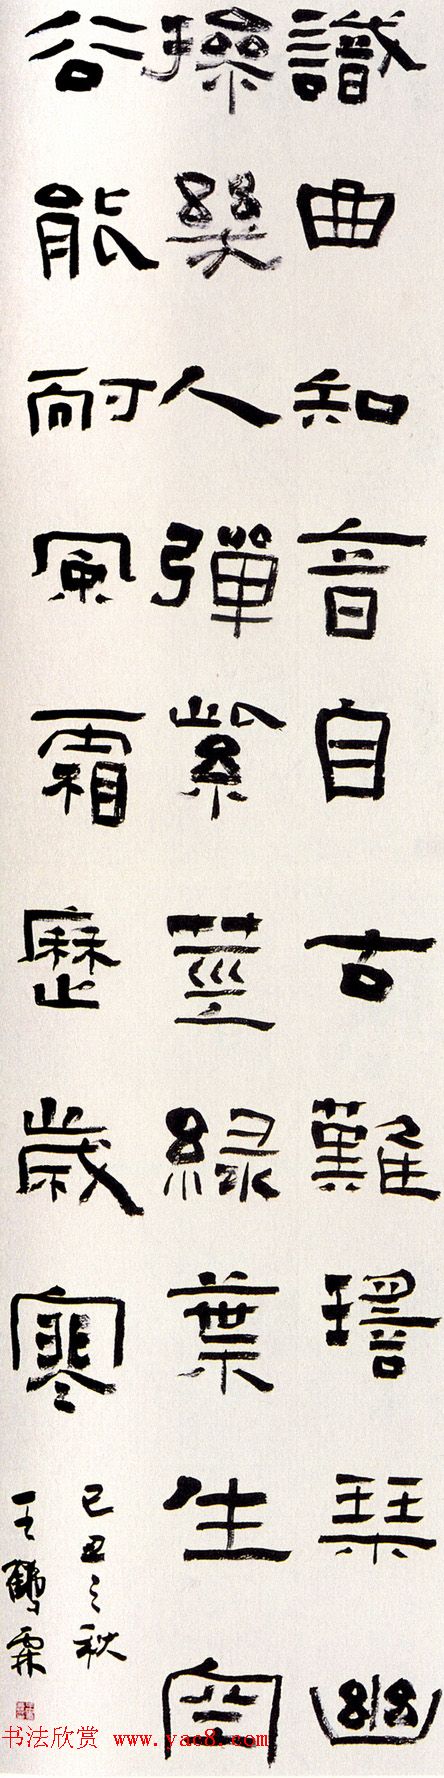 識曲知音自古難瑤琴幽
操幾人彈紫莖綠葉生空
谷能耐風霜歷歲寒
己丑之秋
王鶴霖
书法欣赏 www.yac8.com